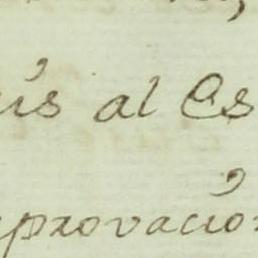 ís al Es
provación